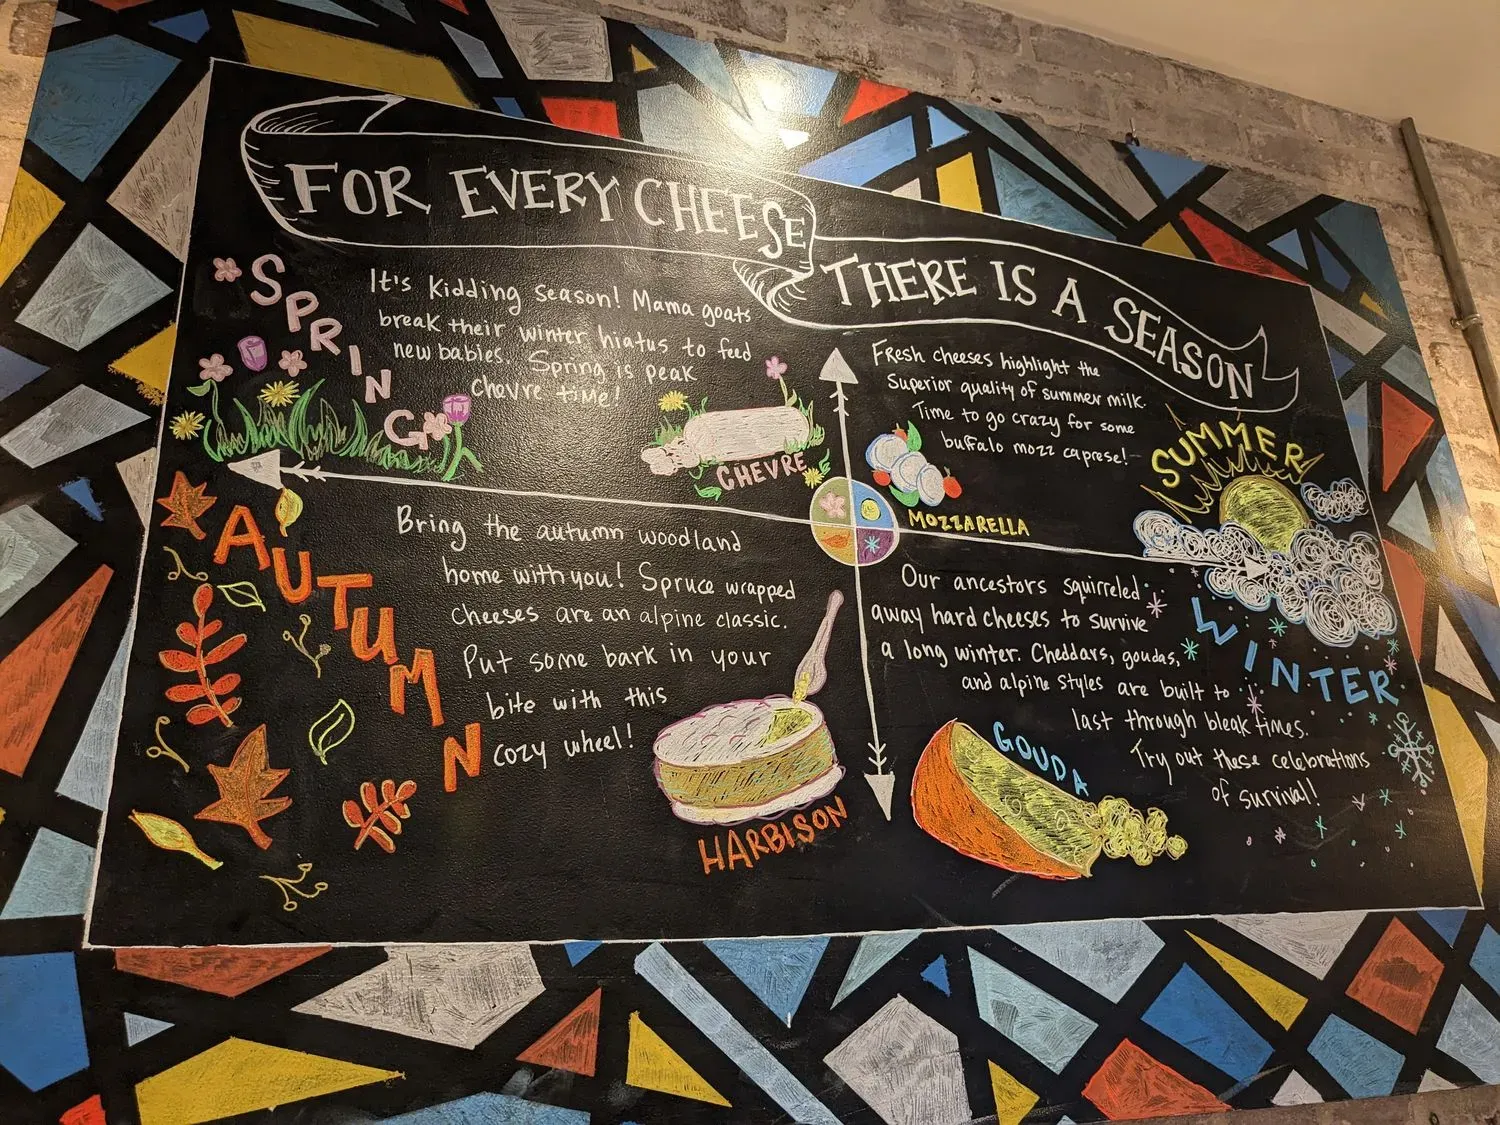 FOR EVERY CHEESE
THERE IS A SEASON
SPRING
It's Kidding season! Mama goats
break their winter hiatus to feed
new babies. Spring is peak
Chevre time!
CHEVRE
Fresh cheeses highlight the
Superior quality of summer milk.
Time to go crazy for some
buffalo mozz caprese!
SUMMER
MOZZARELLA
AUTUMN
Bring the autumn woodland
home with you! Spruce wrapped
cheeses are an alpine classic.
Put some bark in your
bite with this
cozy wheel!
HARBISON
Our ancestors squirreled
away hard cheeses to survive
a long winter. Cheddars, goudas,
and alpine styles are built to
last through bleak times.
Try out these celebrations
of survival!
WINTER
GOUDA